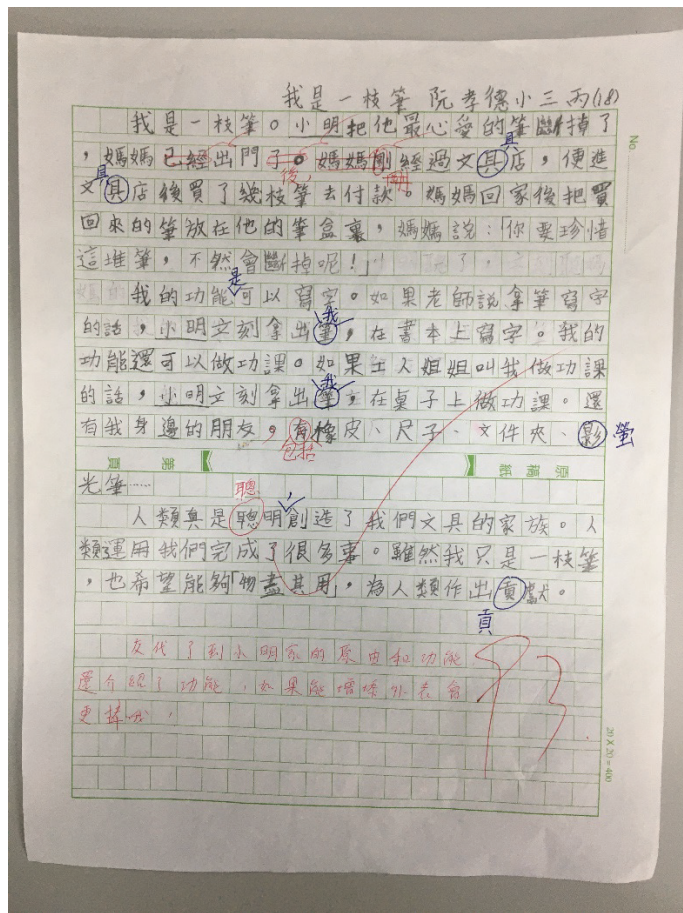 我是一枝筆 阮孝德小三丙(18)
我是一枝筆。小明把他最心愛的筆斷掉了
具
，媽媽已經出門了。媽媽剛經過文具店，便進
具 後，
文具店後買了幾枝筆去付款。媽媽回家後把買
回來的筆放在他的筆盒裏，媽媽說：「你要珍惜
這堆筆，不然會斷掉呢！」
是
我的功能可以寫字。如果老師說拿筆寫字
我
的話，小明立刻拿出筆，在書本上寫字。我的
功能還可以做功課。如果工人姐姐叫我做功課
我
的話，小明立刻拿出筆，在桌子上做功課。還
有我身邊的朋友，有橡皮、尺子、文件夾、影 螢
包括
光筆……
聰 ，
人類真是聰明創造了我們文具的家族。人
類運用我們完成了很多事。雖然我只是一枝筆
，也希望能夠「物盡其用」，為人類作出貢獻。
貢
交代了到小明家的原由和功能
還介紹了功能，如果能增添外表會
更棒哦，
93
No
20 X 20 = 400